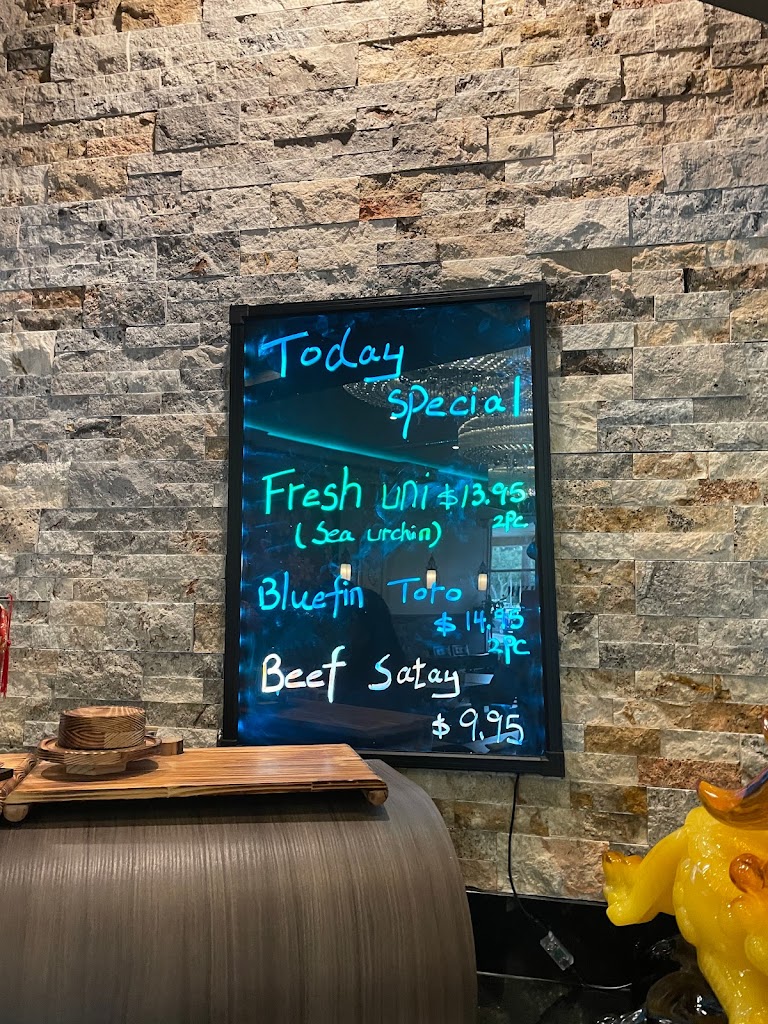 Today
special
Fresh uni $13.95
(Sea urchin) 2pc.
Bluefin Toro
$14.95
2pc
Beef Satay
$9.95